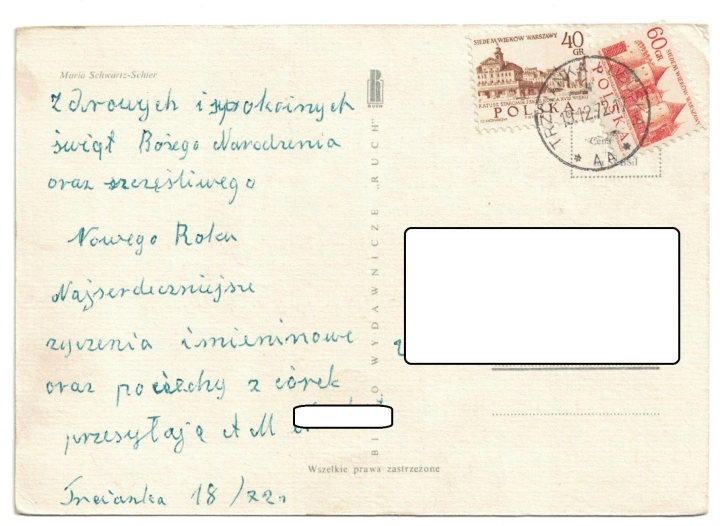 Maria Schwartz-Schier
Zdrowych i spokojnych
świąt Bożego Narodzenia
oraz szczęśliwego
Nowego Roku
Najserdeczniejsze
życzenia imieninowe
oraz pociechy z córek
przesyłają A M
Trzcianka 18/72r
SIEDEM WIEKÓW WARSZAWY
40 GR
POLSKA
60 GR
SIEDEM WIEKÓW WARSZAWY
POLSKA
19.12.72
* AA *
Cena
RUCH
BIURO WYDAWNICZE „RUCH"
Wszelkie prawa zastrzeżone